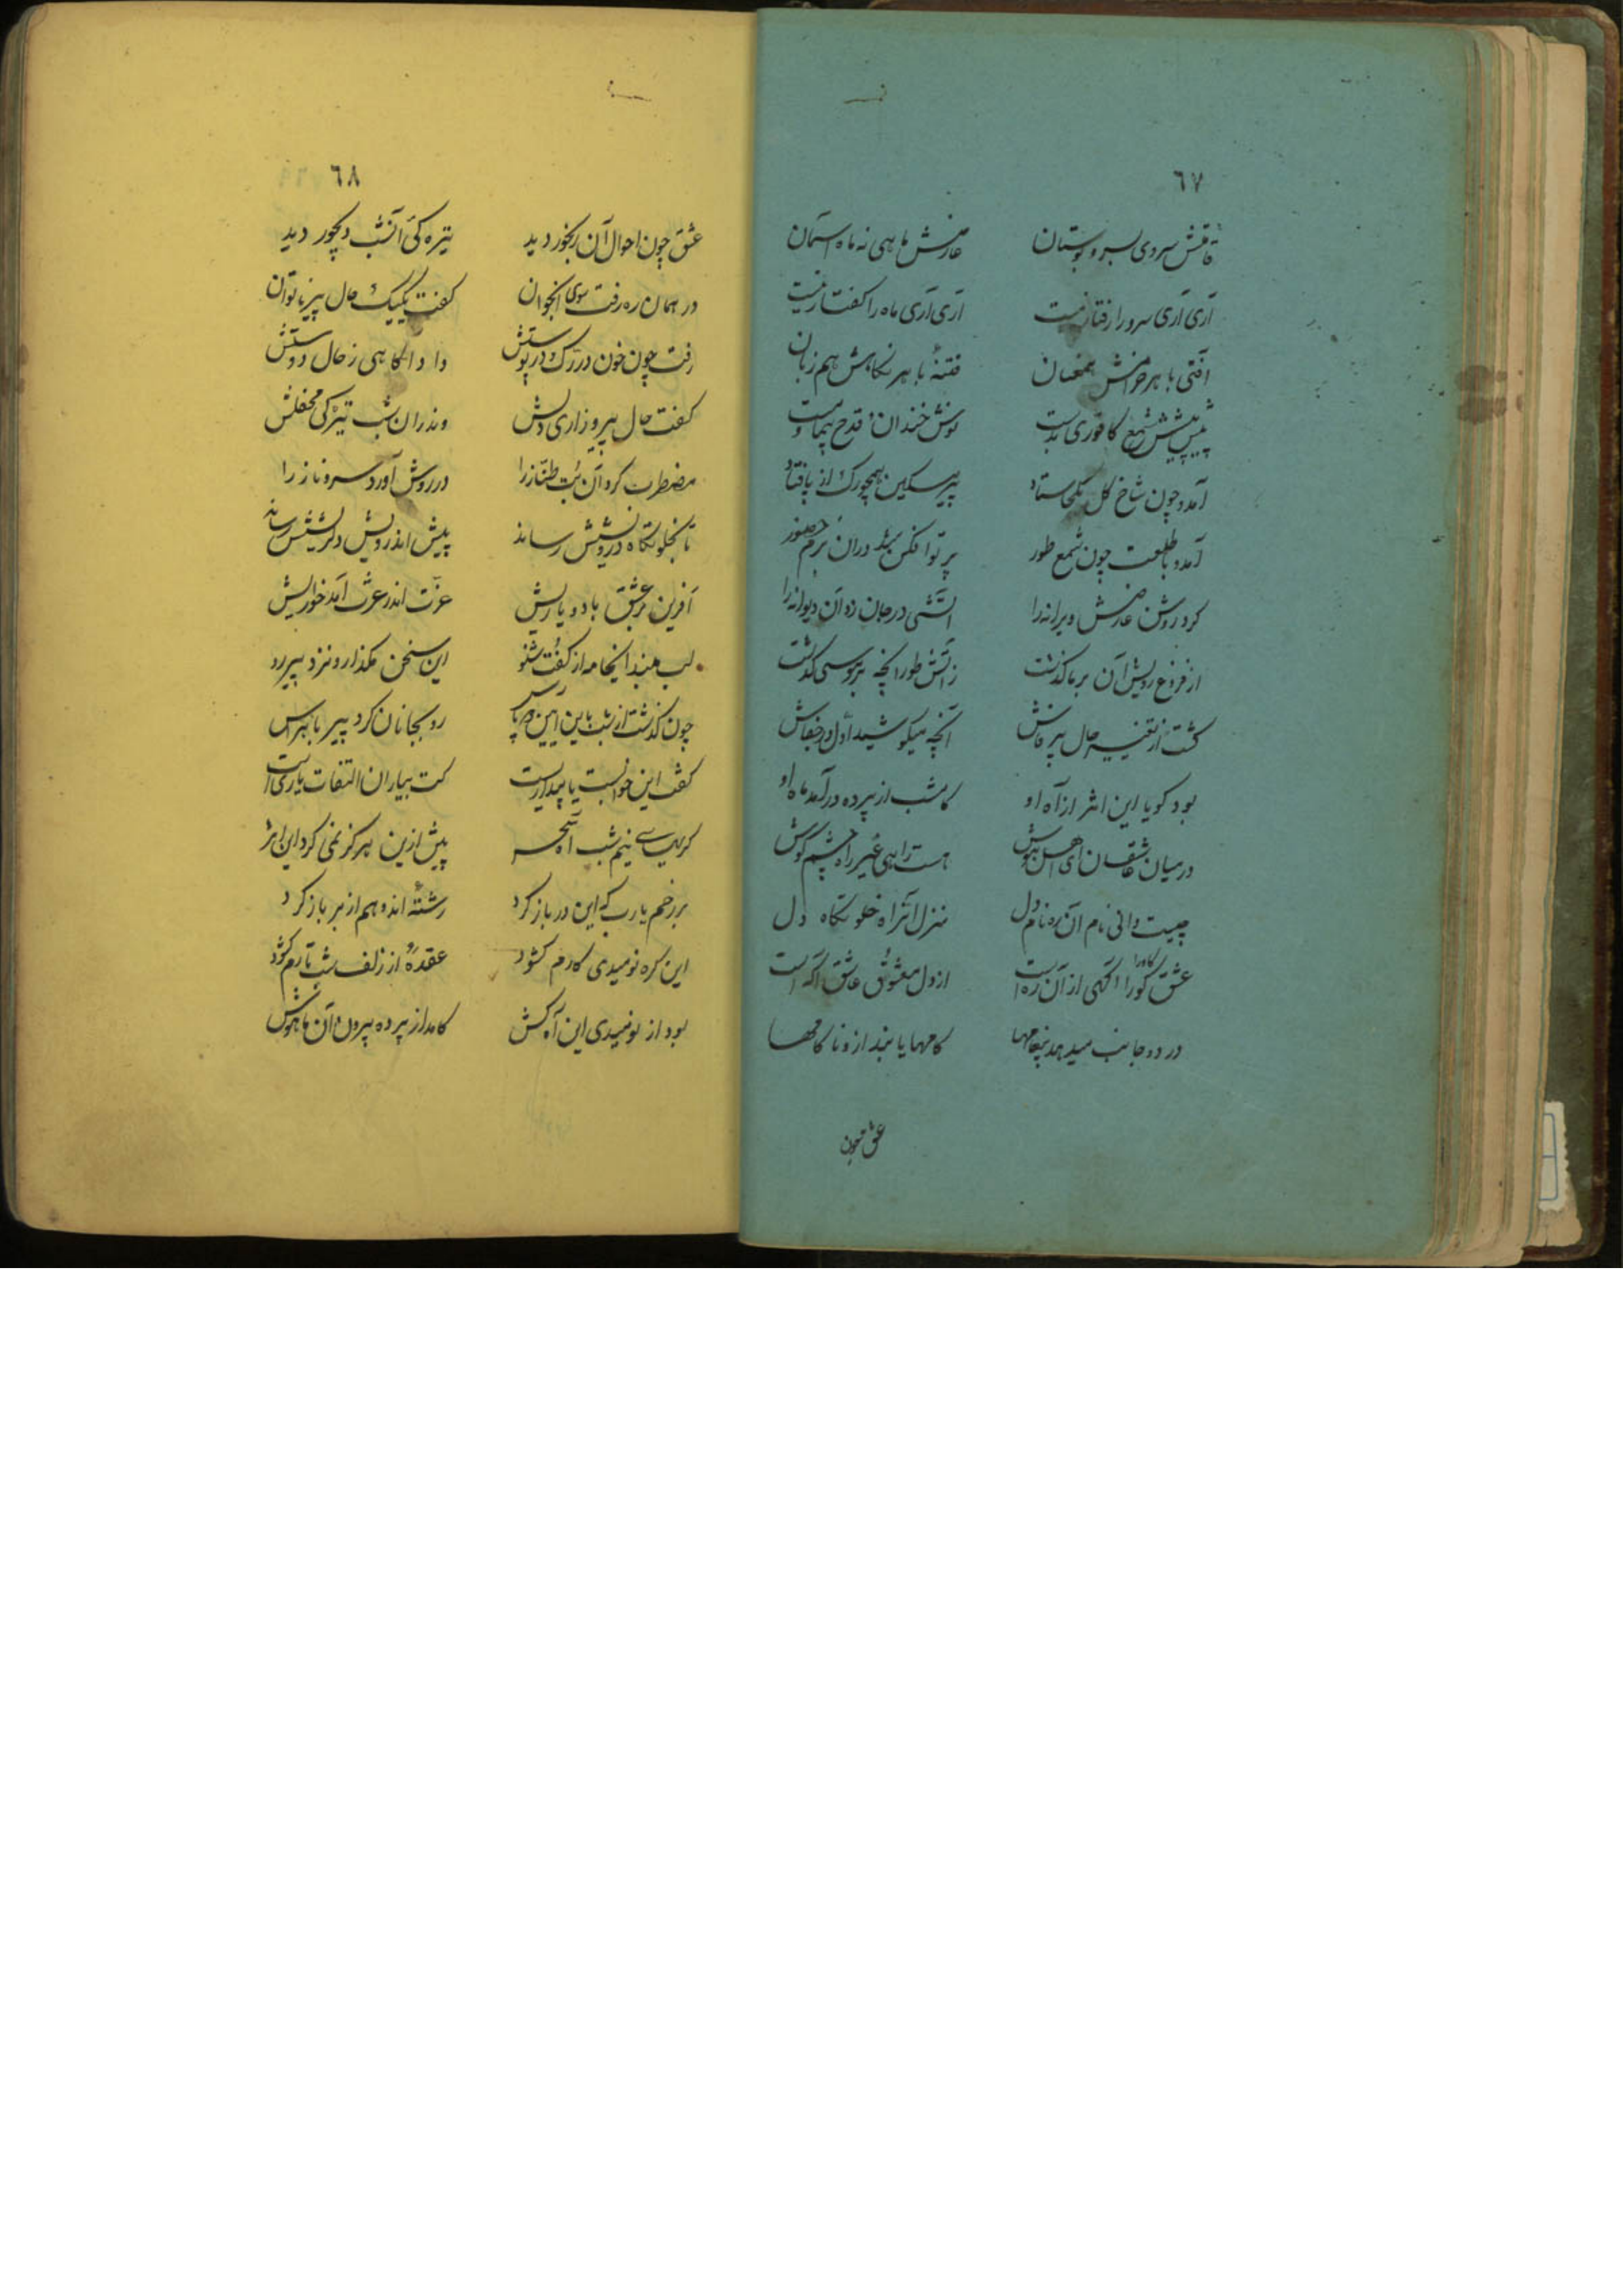 ٦٧
قامتش سروی نه سرو بوستان عارضش ماهی نه ماه آسمان
آری آری سرو را رفتار نیست آری آری ماه را گفتار نیست
آفتی با هر خرامش همعنان فتنهٔ با هر نگاهش هم زبان
پیش پیشش شمع کافوری بدست نوش خندان قدح پیما و مست
آمد و چون شاخ گل یکجا ستاد پیر مسکین همچو برگ از پا فتاد
آمد و با طلعت چون شمع طور پرتو افکن شد در آن بزم حضور
کرد روشن عارضش ویرانه را آتشی در جان زد آن دیوانه را
از فروغ رویش آن بر ما گذشت ز آتش طور آنچه بر موسی گذشت
گشت از تغییر حال پیر فاش آنچه میکوشید اول در خفاش
بود گویا این اثر از آه او کامشب از پرده درآمد ماه او
در میان عاشقان ای اهل هوش هست راهی غیر راه چشم و گوش
چیست دانی نام آن ره نام دل منزل آنراه خلوتگاه دل
عشق کورا آگهی از آن ره است از دل معشوق عاشق آگه است
در دو جانب میدهد پیغامها کامها یابند ازو ناکامها
عشق چون
٦٨
عشق چون احوال آن رنجور دید تیره گی آنشب دیجور دید
در همان ره رفت سوی آنجوان گفت یکیک حال پیر ناتوان
رفت چون خون در رگ و در پوستش داد آگاهی ز حال دوستش
گفت حال پیر و زاری دلش وندران شب تیرگی محفلش
مضطرب کرد آن بت طناز را در روش آورد سرو ناز را
تا بخلوتگاه درویشش رساند پیش اندر ویش دلریشش رساند
آفرین بر عشق باد و یاریش عزت اندر عزت آمد خواریش
لب ببند اینجا مه از گفت و شنو این سخن بگذار و نزد پیر رو
چون گذشت از شب باین آیین دو پاس رو بجانان کرد پیر با هراس
گفت این خوابست یا بیداریست کت بیاران التفات یاریست
گریهای نیم شب آه سحر پیش ازین هرگز نمی کرد این اثر
بر رخم یا رب که این در باز کرد رشتهٔ اندوهم از بر باز کرد
این گره نومیدی کارم گشود عقدهٔ از زلف شب تارم گشود
بود از نومیدی این آه کش کامد از پرده برون آن ماهوش